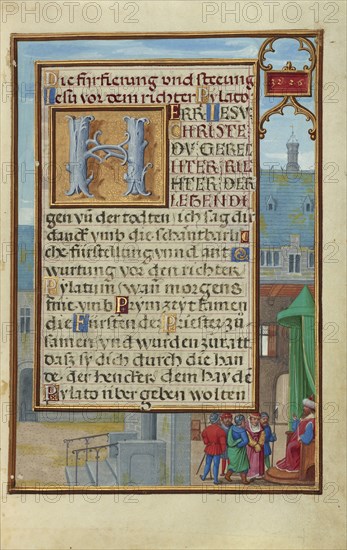 Die fürfierung und stellung
Jesu vor dem richter Pylato
HERR IESV
CHRISTE
DV GEREC
HTER RIC
HTER DER
LEBENDI
gen vn̄ der todten ich sag dir
danck vmb die schantbarli
che fürstellung vnnd ant
wurtung vor den richter
Pylatum wan̄ morgens
frue vmb Prymzeyt kamen
die Fürsten der Priester zu
samen vnd wurden zu ratt
das sy dich durch die han
de der hencker dem hayde
Pylato vber geben wolten